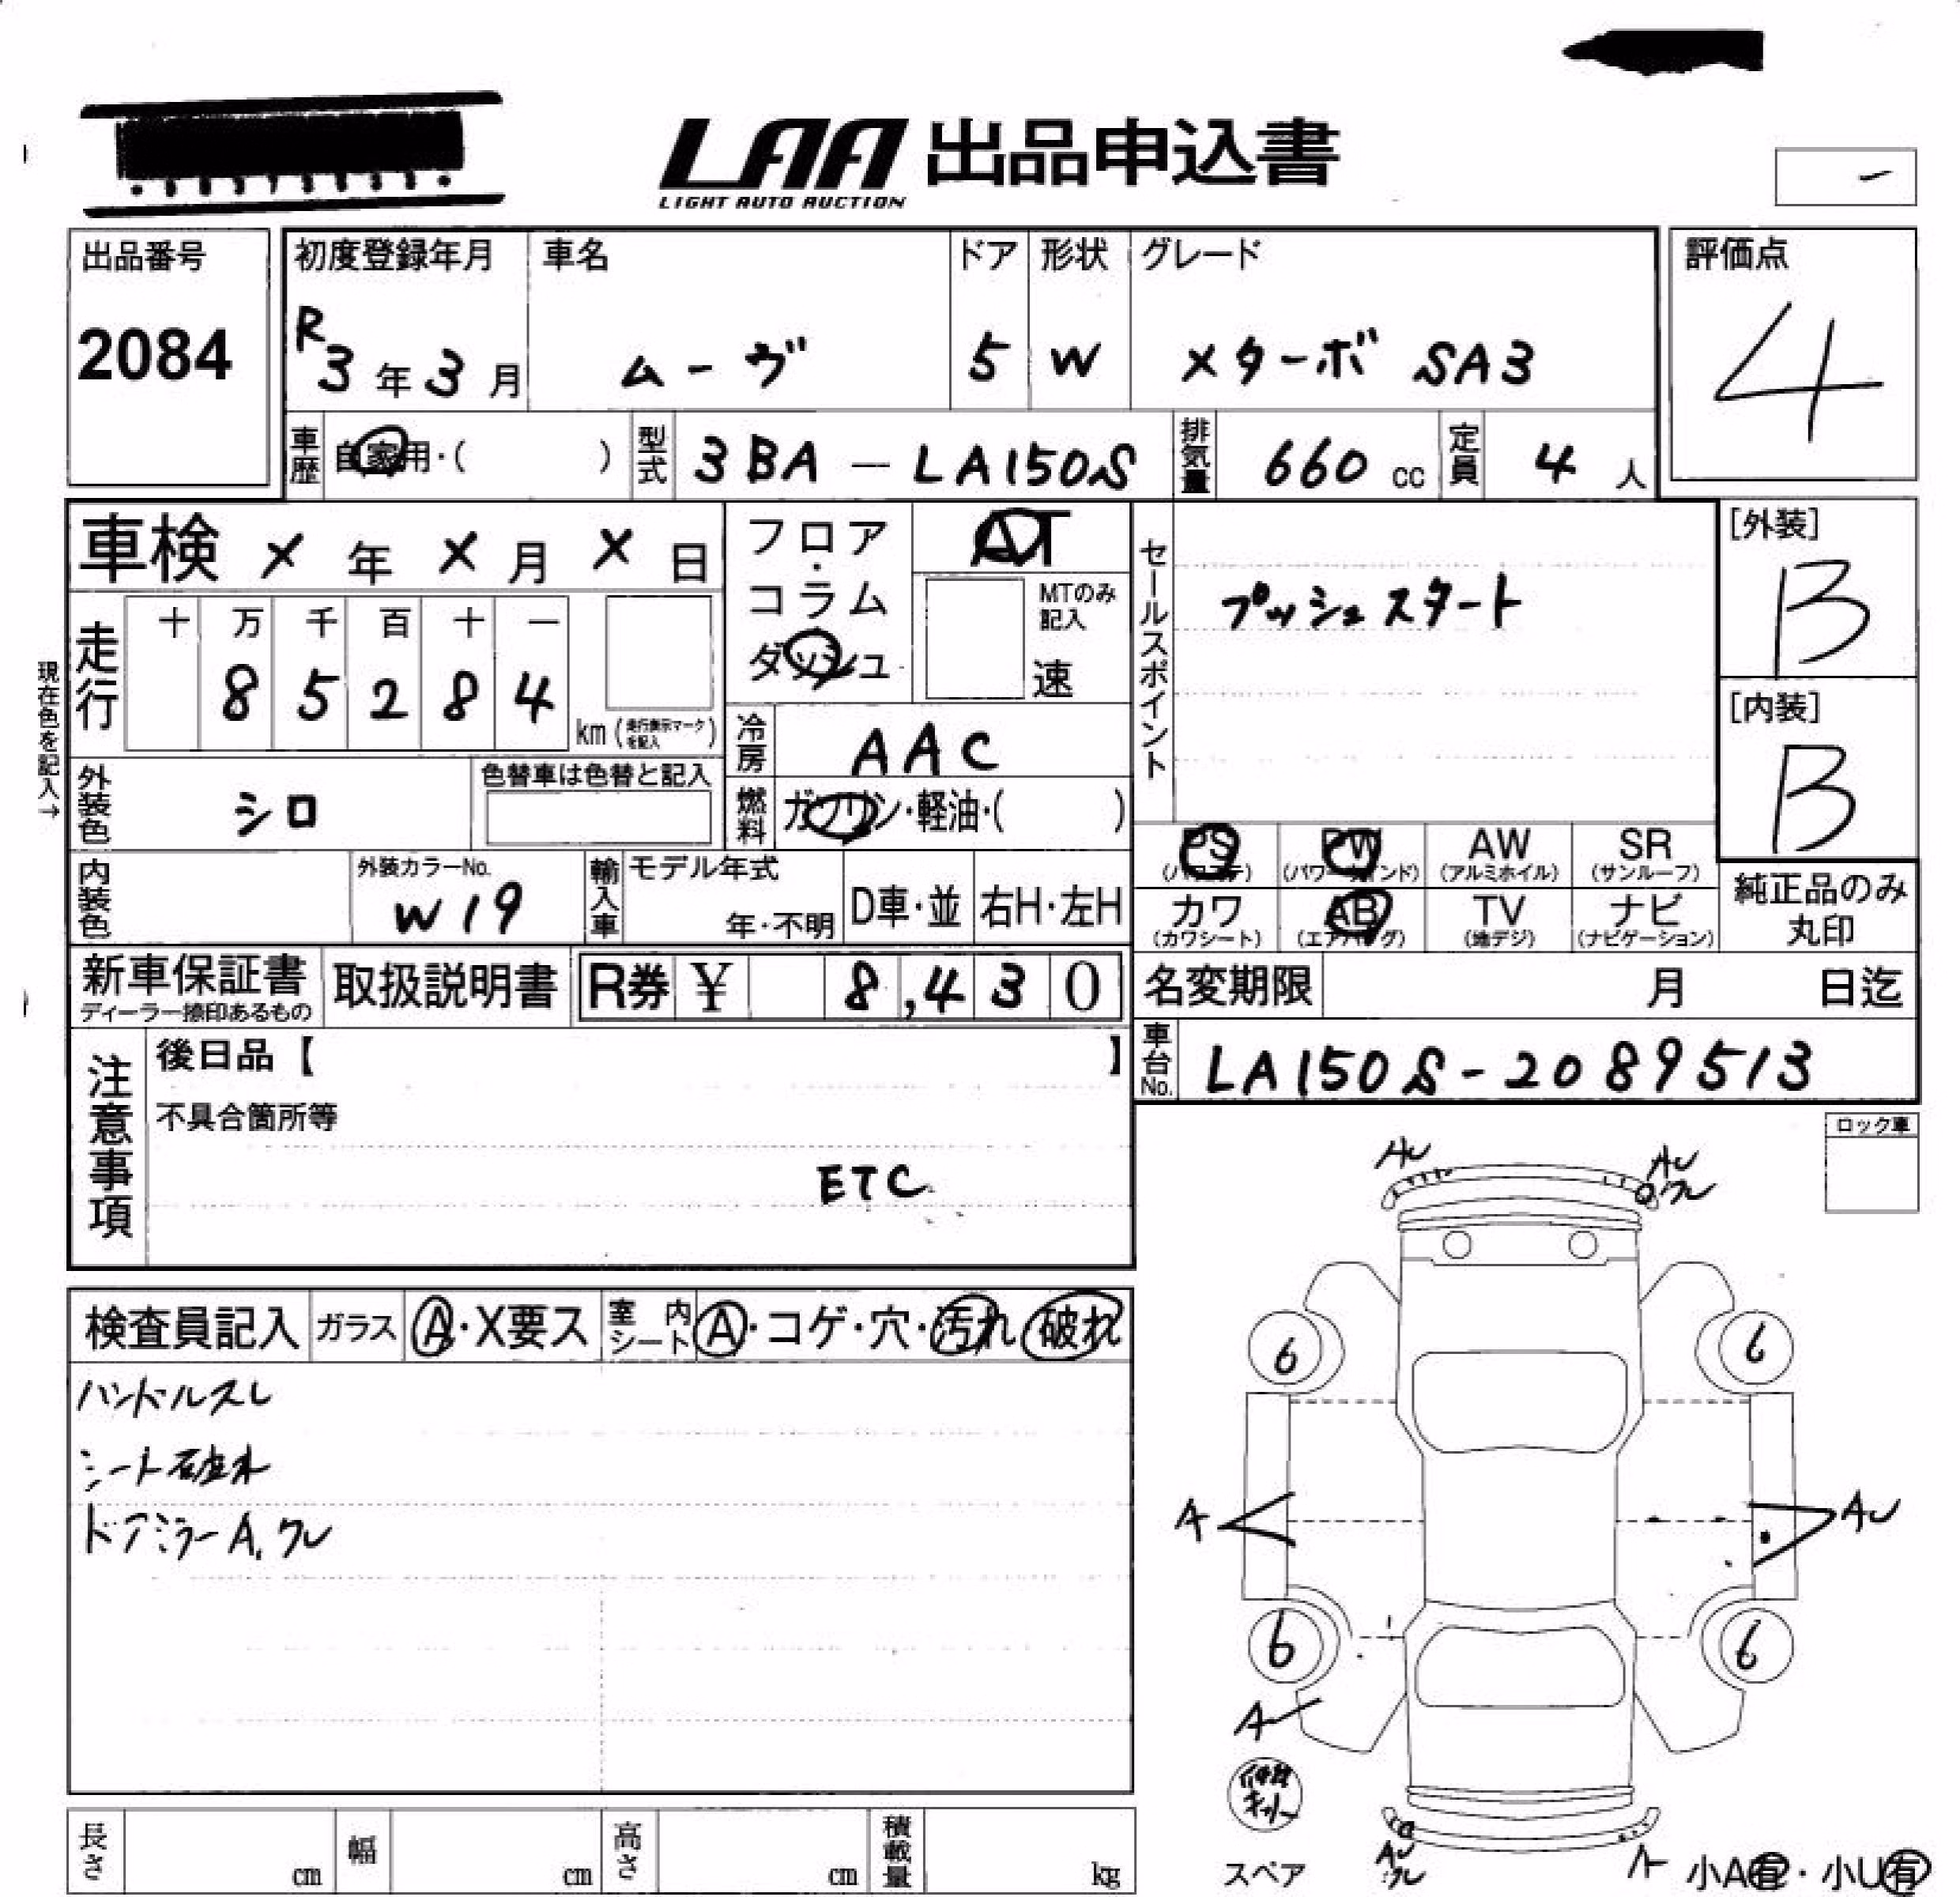 LAA 出品申込書
LIGHT AUTO AUCTION
出品番号
2084
初度登録年月 車名 ドア 形状 グレード
R3年3月 ムーヴ 5 W Xターボ SA3
評価点
4
車歴 自家用・( ) 型式 3BA-LA150S 排気量 660 cc 定員 4 人
車検 X 年 X 月 X 日
フロア・コラム ダッシュ
AT
MTのみ記入
速
セールスポイント
プッシュスタート
[外装]
B
[内装]
B
現在色を記入→
走行
十 万 千 百 十 一
8 5 2 8 4
km (走行表示マークを記入)
冷房 AAC
外装色 シロ 色替車は色替と記入
燃料 ガソリン・軽油・( )
PS PW AW SR
(パワステ) (パワーウインド) (アルミホイル) (サンルーフ)
カワ AB TV ナビ
(カワシート) (エアバッグ) (地デジ) (ナビゲーション)
純正品のみ
丸印
内装色 外装カラーNo. W19 輸入車 モデル年式 年・不明 D車・並 右H・左H
新車保証書 取扱説明書 R券 ¥ 8,430
ディーラー捺印あるもの
名変期限 月 日迄
車台No. LA150S-2089513
注意事項
後日品【 】
不具合箇所等
ETC
ロック車
AU AU
検査員記入 ガラス A・X要ス 室内シート A・コゲ・穴・汚れ 破れ
ハンドルスレ
シート破れ
ドアミラーA.ワレ
6 6
A AU
6 6
A
スペア
AU
小A有・小U有
長さ cm 幅 cm 高さ cm 積載量 kg